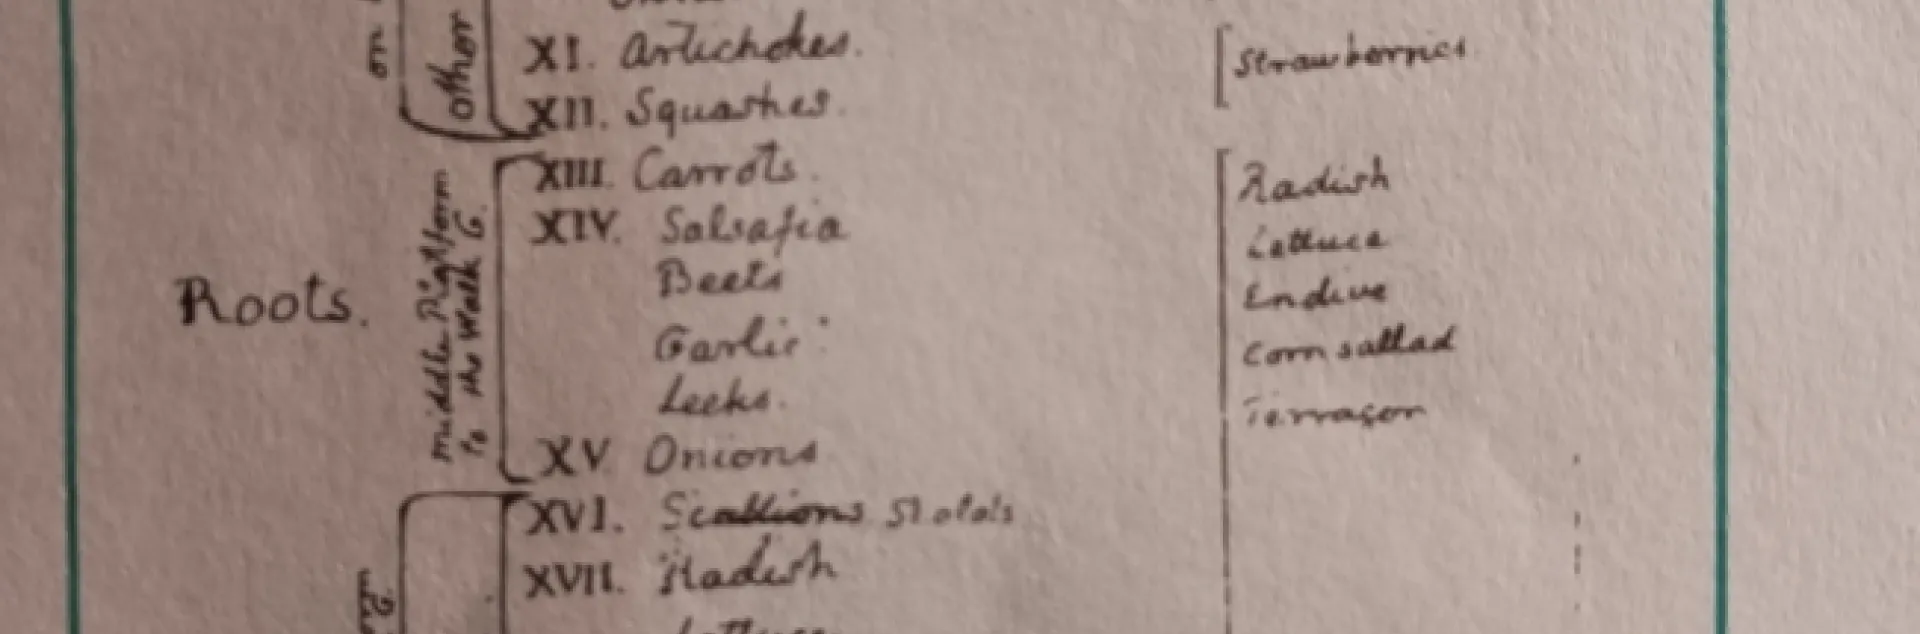 on
other
XI. Artichokes.
Strawberries
XII. Squashes.
XIII. Carrots.
Radish
XIV. Salsafia
Lettuce
Beets
Endive
Roots.
middle Platform
to the Walk G.
Garlic
Corn sallad
Leeks.
Terragon
XV Onions
XVI. Scallions
XVII. Radish
Lettuce